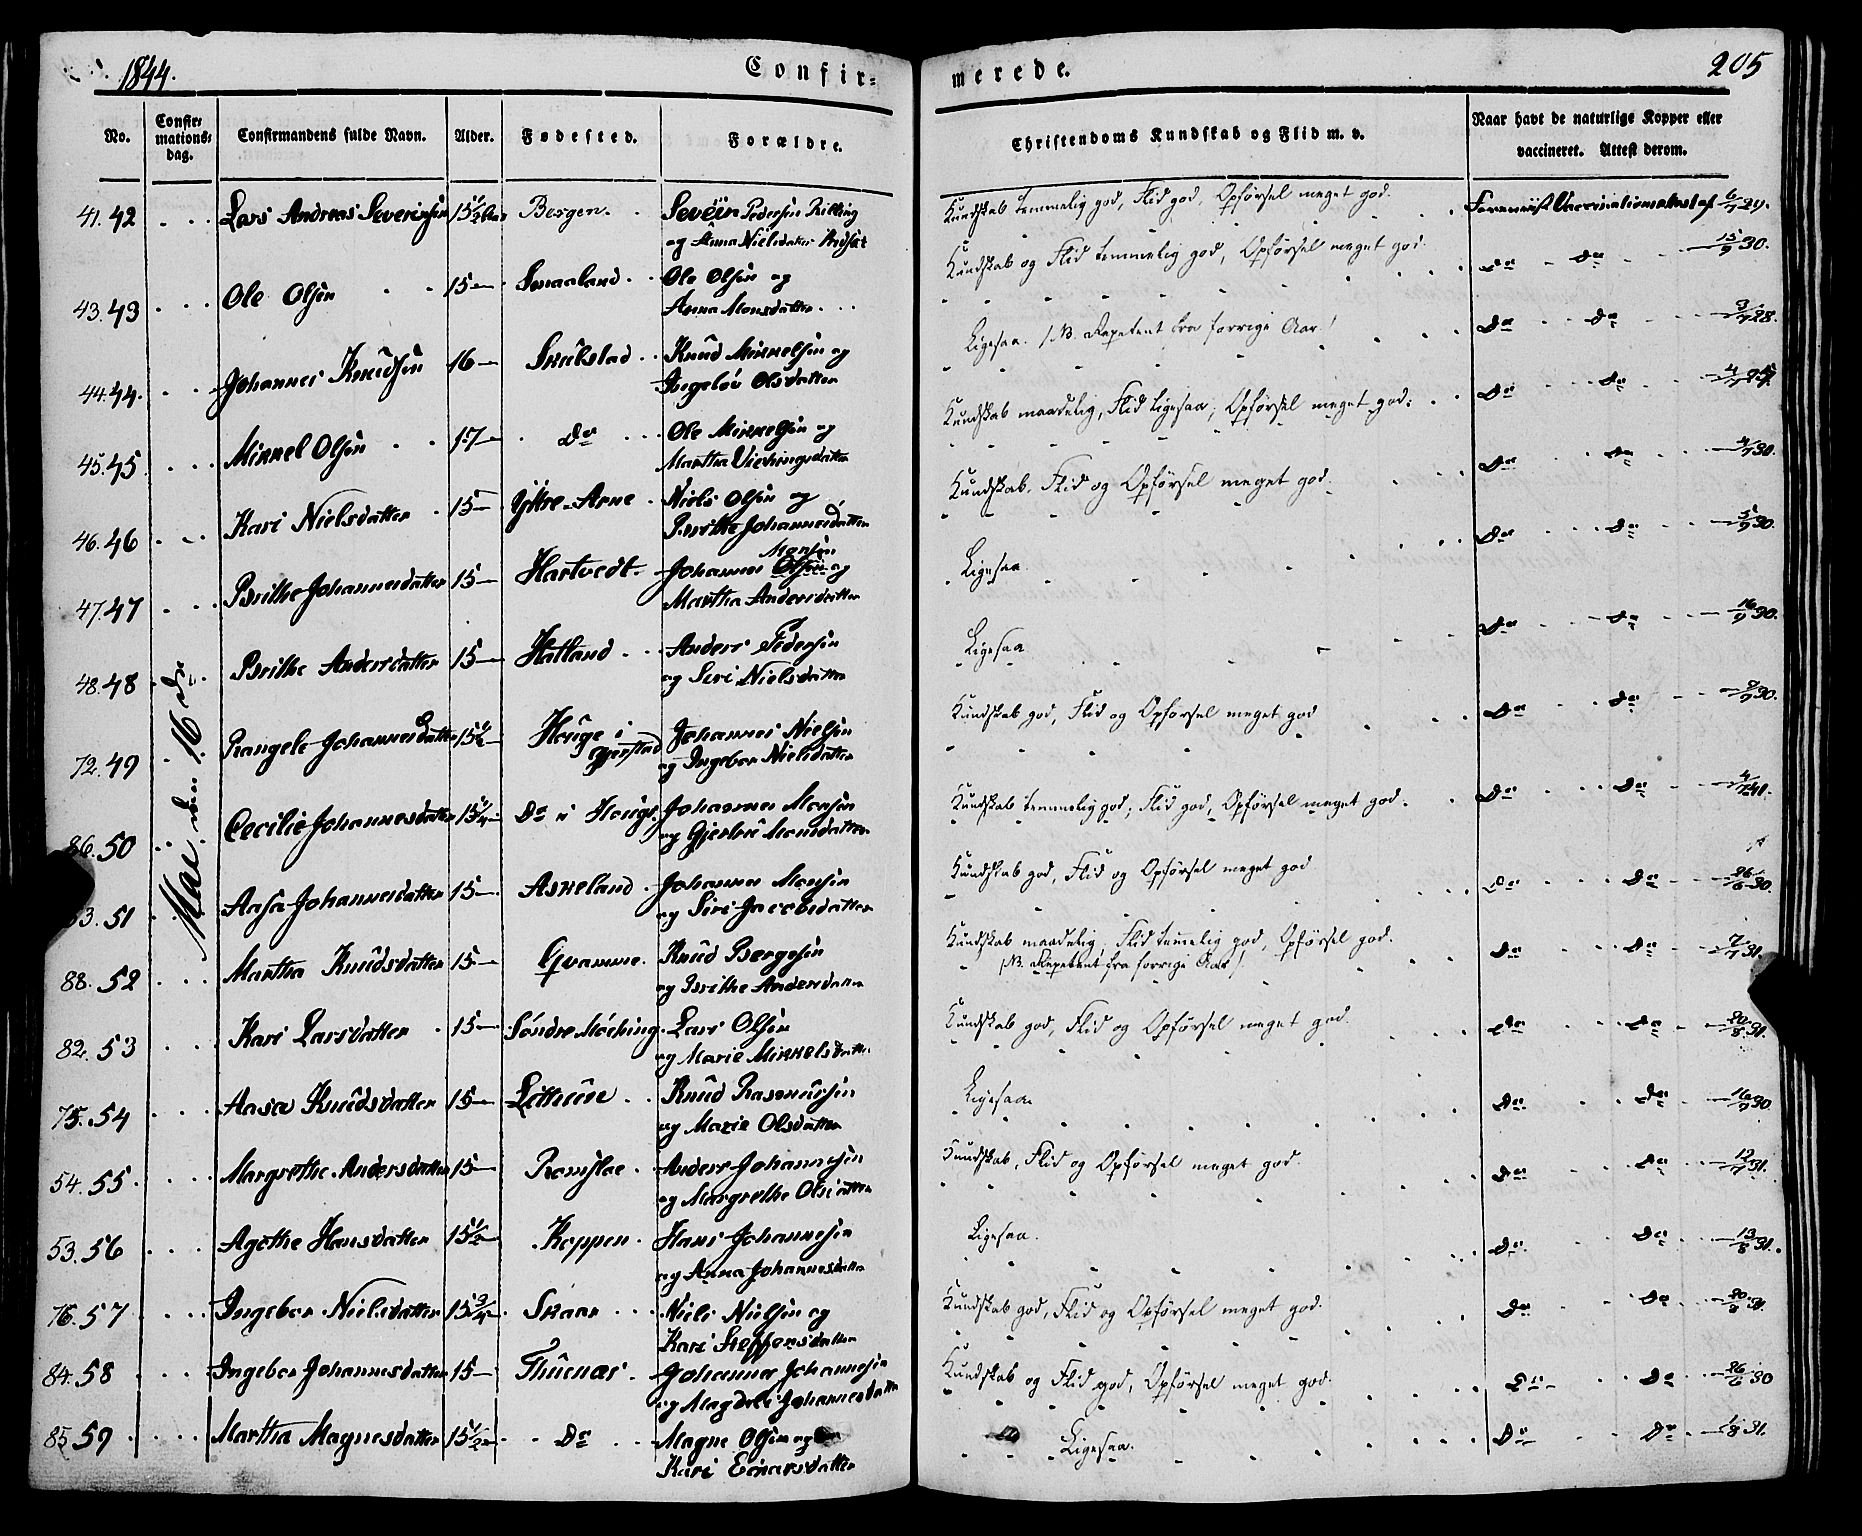 1844.
Confir-
merede.
205
No.
Confir-
mations-
dag.
Confirmandens fulde Navn.
Alder.
Fødested.
Forældre.
Christendoms Kundskab og Flid m. v.
Naar havt de naturlige Kopper eller
vaccineret. Attest derom.
41. 42 Lars Andreas Severinsen 15 1/2 Bergen. Severin Pedersen
og Anna Nielsdatter
Kundskab temmelig god, Flid god, Opførsel meget god. Foreviist Vaccinationsattest af 6/7 29.
43. 43 Ole Olsen 15 Smaaland Ole Olsen og
Anna Monsdatter
Kundskab og Flid temmelig god, Opførsel meget god. Do Do 15/9 30.
44. 44. Johannes Knudsen 16 Skulstad Knud Mikkelsen og
Ingebor Olsdatter
Ligesaa. (NB. Repetent fra forrige Aar) Do Do 28.
45. 45. Mikkel Olsen 17 Do Ole Mikkelsen og
Martha Vichingsdatter
Kundskab maadelig, Flid Ligesaa; Opførsel meget god. Do Do
46. 46 Kari Nielsdatter 15 Ytre-Arne Niels Olsen og
Brithe Johannesdatter
Kundskab, Flid og Opførsel meget god. Do Do 30.
47. 47 Brithe Johannesdatter 15 Hartvedt Johannes Olsen og
Monsen
Martha Andersdatter
Ligesaa Do Do 5/9 30.
48. 48 Brithe Andersdatter 15 Hatland Anders Pedersen
og Siri Nielsdatter
Ligesaa Do Do 16/9 30.
72. 49 Rangele Johannesdatter 15 1/2 Houge i
Gjerstad Johannes Nielsen
og Ingebor Nielsdatter
Kundskab god, Flid og Opførsel meget god Do Do 30.
86. 50 Cecilie Johannesdatter 15 1/4 Do i Houge Johannes Monsen
og Gjertrü Monsdatter
Kundskab temmelig god; Flid god, Opførsel meget god. Do Do 41.
51 Aasa Johannesdatter 15 Askeland Johannes Monsen
og Siri Jacobsdatter
Kundskab god, Flid og Opførsel meget god Do Do 26/6 30.
88. 52 Martha Knudsdatter 15 Gvamme Knud Børgesen
og Brithe Andersdatter
Kundskab maadelig, Flid temmelig god, Opførsel god. Do Do 7/7 31.
(NB. Repetent fra forrige Aar)
82. 53 Kari Larsdatter 15 Søndre Møching Lars Olsen
og Marie Mikkelsdatter
Kundskab god, Flid og Opførsel meget god. Do Do 20/8 31.
75. 54 Aasa Knudsdatter 15 Knud Rasmussen
og Marie Olsdatter
Ligesaa Do Do 16/9 30.
54. 55 Margrethe Andersdatter 15 Romsloe Anders Johannesen
og Margrethe Olsdatter
Kundskab, Flid og Opførsel meget god. Do Do 12/7 31.
53. 56 Agothe Hansdatter 15 1/2 Koppen Hans Johannesen
og Anna Johannesdatter
Ligesaa. Do Do 13/8 31.
76. 57 Ingebor Nielsdatter 15 3/4 Skaar Niels Nielsen og
Kari Steffensdatter
Kundskab god, Flid og Opførsel meget god. Do Do 20/8 31.
84. 58 Ingebor Johannesdatter 15 Thuenæs Johannes Johannesen
og Magdeli Johannesdatter
Kundskab og Flid god, Opførsel meget god. Do Do 26/6 30
85. 59 Martha Magnesdatter 15 1/2 Do Magne Olsen og
Kari Einarsdatter
Ligesaa. Do Do 1/8 31.
Mai den 16de